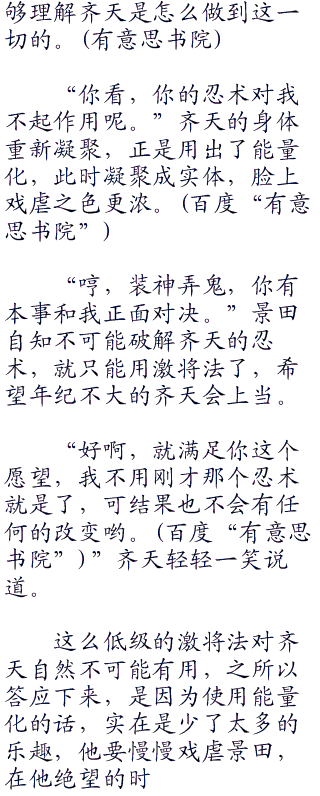 够理解齐天是怎么做到这一
切的。(有意思书院)
“你看，你的忍术对我
不起作用呢。”齐天的身体
重新凝聚，正是用出了能量
化，此时凝聚成实体，脸上
戏虐之色更浓。(百度“有意
思书院”)
“哼，装神弄鬼，你有
本事和我正面对决。”景田
自知不可能破解齐天的忍
术，就只能用激将法了，希
望年纪不大的齐天会上当。
“好啊，就满足你这个
愿望，我不用刚才那个忍术
就是了，可结果也不会有任
何的改变哟。(百度“有意思
书院”)”齐天轻轻一笑说
道。
这么低级的激将法对齐
天自然不可能有用，之所以
答应下来，是因为使用能量
化的话，实在是少了太多的
乐趣，他要慢慢戏虐景田，
在他绝望的时